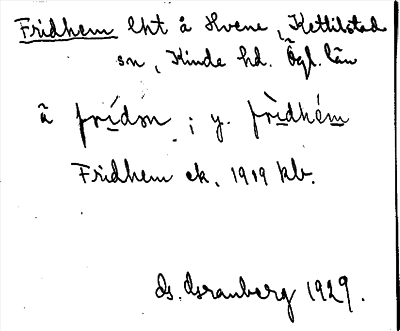 Fridhem lht å Hvene, Kettilstad
sn, Kinda hd. Ögl. län
ä frídän ; y. frìdhém
Fridhem ek. 1919 kb.
G. Granberg 1929.